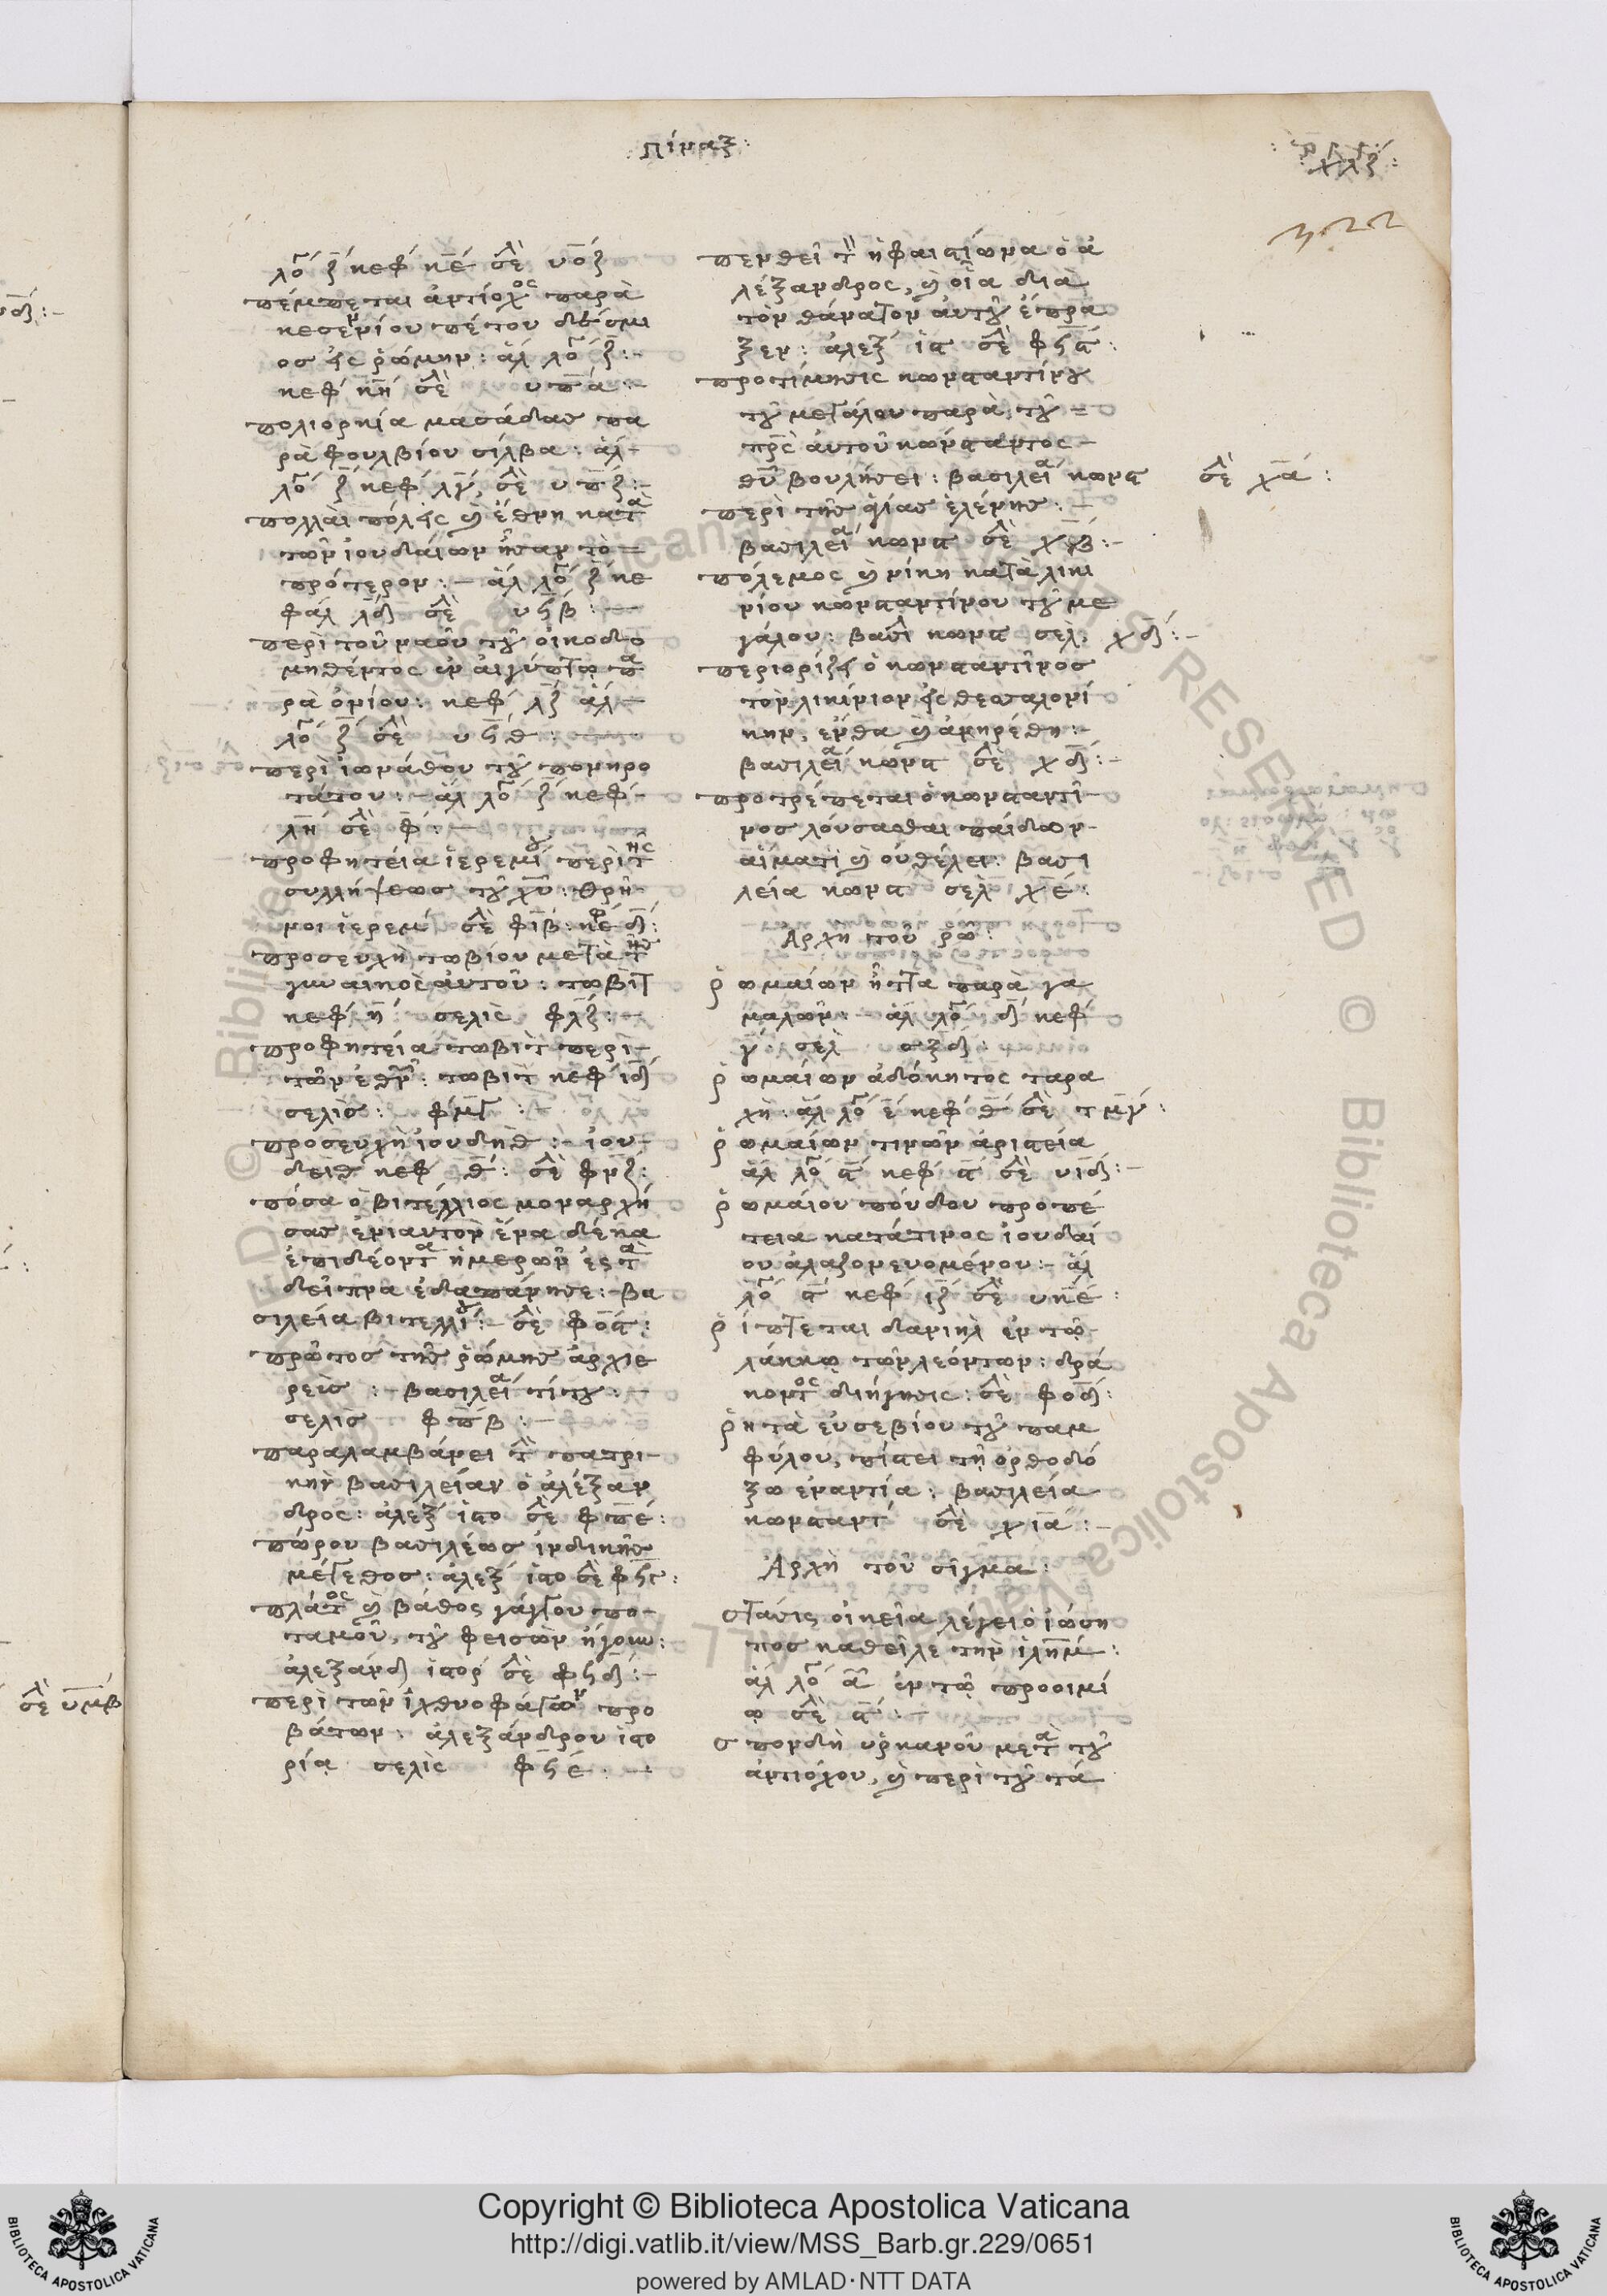 πίναξ:
χλξ:
322
λό ζ κεφ κε σελ υοζ
πέμπεται ἀντίοχος παρὰ
κεσεννίου πέτου δέσμι
ος εἰς ῥώμην: ἁλ λό ζ:-
κεφ κη σελ υπα:-
πολιορκία μασάδας πα
ρὰ φουλβίου σίλβα: ἁλ-
λό ζ κεφ λγ, σελ υπζ:-
πολλαὶ πόλεις καὶ ἔθνη κατὰ
τῶν ἰουδαίων ἦσαν τὸ
πρότερον:- ἁλ λό ζ κε
φάλ λδ σελ υϟβ:-
περὶ τοῦ ναοῦ τοῦ οἰκοδο
μηθέντος ἐν αἰγύπτω πα
ρὰ ὀνίου: κεφ λζ ἁλ-
λό ζ σελ υϟθ:
περὶ ἰωνάθου τοῦ πονηρο
τάτου:- ἁλ λό ζ κεφ-
λη σελ φ:-
προφητεία ἱερεμίου περὶ τῆς
συλλήψεως τοῦ χυ: θρῆ-
νοι ἱερεμ σελ φιβ: κεφ δ:
προσευχὴ τωβίου μετὰ τῆς
γυναικὸς αὐτοῦ: τωβὶτ
κεφ η σελὶς φλζ:-
προφητεία τωβὶτ περὶ-
τῶν ἐθνῶν: τωβιτ κεφ ιδ
σελὶς: φμγ:
προσευχὴ ἰουδηθ:- ἰου-
δειθ κεφ θ: σελ φνζ:
πόσα ὁ βιτέλλιος μοναρχή
σας ἐνιαυτὸν ἕνα δέκα
ἐπιδέοντα ἡμερῶν ἐς τὰ
δεῖπνα ἐδαπάνησε:- βα
σιλεία βιτελλίου:- σελ φοα:
πρῶτος τῆς ῥώμης ἀρχιε
ρεὺς:- βασιλεία τίτου:-
σελὶς φπβ:-
παραλαμβάνει τὴν πατρι-
κὴν βασιλείαν ὁ ἀλέξαν
δρος: ἀλεξ ἱστο σελ φπέ:
πώρου βασιλέως ἰνδικῆς
μέγεθος: ἀλεξ ἱστο σελ φϟγ:
πλάτος καὶ βάθος γάγγου πο-
ταμοῦ, τοῦ φεισὼν ἤγουν:
ἀλεξανδ ἱστορ σελ φϟδ:-
περὶ τῶν ἰχθυοφάγων προ
βάτων: ἀλεξάνδρου ἱστο
ρία σελὶς φϟέ:-
πενθεῖ τὸν ἡφαιστίωνα ὁ ἀ
λέξανδρος, καὶ οἷα διὰ
τὸν θάνατον αὐτοῦ ἔπρα
ξεν: ἀλεξ ἱστ σελ φϟα:
προτίμησις κωνσταντίνου
τοῦ μεγάλου παρὰ τοῦ
πρς αὐτοῦ κώνσταντος-
θυ βουλήσει: βασιλεία κωνστ σελ χα:
περὶ τῆς ἁγίας ἑλένης:-
βασιλεία κωνστ σελ χβ:-
πόλεμος καὶ νίκη κατὰ λικι
νίου κωνσταντίνου τοῦ με
γάλου: βασι κωνστ σελ, χδ:-
περιορίζει ὁ κωνσταντῖνος
τὸν λικίνιον εἰς θεσσαλονί
κην, ἔνθα καὶ ἀνηρέθη:-
βασιλεία κωνστ σελ χδ:-
προτρέπεται ὁ κωνσταντῖ-
νος λούσασθαι παίδων-
αἵματι καὶ οὐ θέλει: βασι
λεία κωνστ σελ χε:
Ἀρχὴ τοῦ ρω:
ῥωμαίων ἧττα παρὰ γα
μάλων:- ἁλ λό δ κεφ
γ σελ σξδ:
ῥωμαίων ἀδόκητος ταρα
χὴ: ἁλ λό ε κεφ θ σελ τμγ:
ῥωμαίων τινῶν ἀριστεία
ἁλ λό στ κεφ α σελ υιδ:-
ῥωμαίου πούδου προπέ
τεια κατά τινος ἰουδαί
ου ἀλαζονευομένου:- ἁλ
λό στ κεφ ιζ σελ υκέ:
ῥίπτεται δανιηλ ἐν τῶ
λάκκω τῶν λεόντων: δρά
κοντος διήγησις: σελ φοδ:
ῥητὰ εὐσεβίου τοῦ παμ
φύλου, πίστει τῆ ὀρθοδό
ξω ἐναντία: βασιλεία
κωνσταντ σελ χια:-
Ἀρχὴ τοῦ σίγμα:
στάσις οἰκεῖα λέγει ὁ ἰώση
πος καθεῖλε τὴν ἱλημ:
ἁλ λό α ἐν τῶ προοιμί
ω σελ α:-
σπονδὴ ὑρκανοῦ μετὰ τοῦ
ἀντιόχου, καὶ περὶ τοῦ τά
σελ υμβ
Copyright © Biblioteca Apostolica Vaticana
http://digi.vatlib.it/view/MSS_Barb.gr.229/0651
powered by AMLAD·NTT DATA
BIBLIOTECA APOSTOLICA VATICANA
BIBLIOTECA APOSTOLICA VATICANA